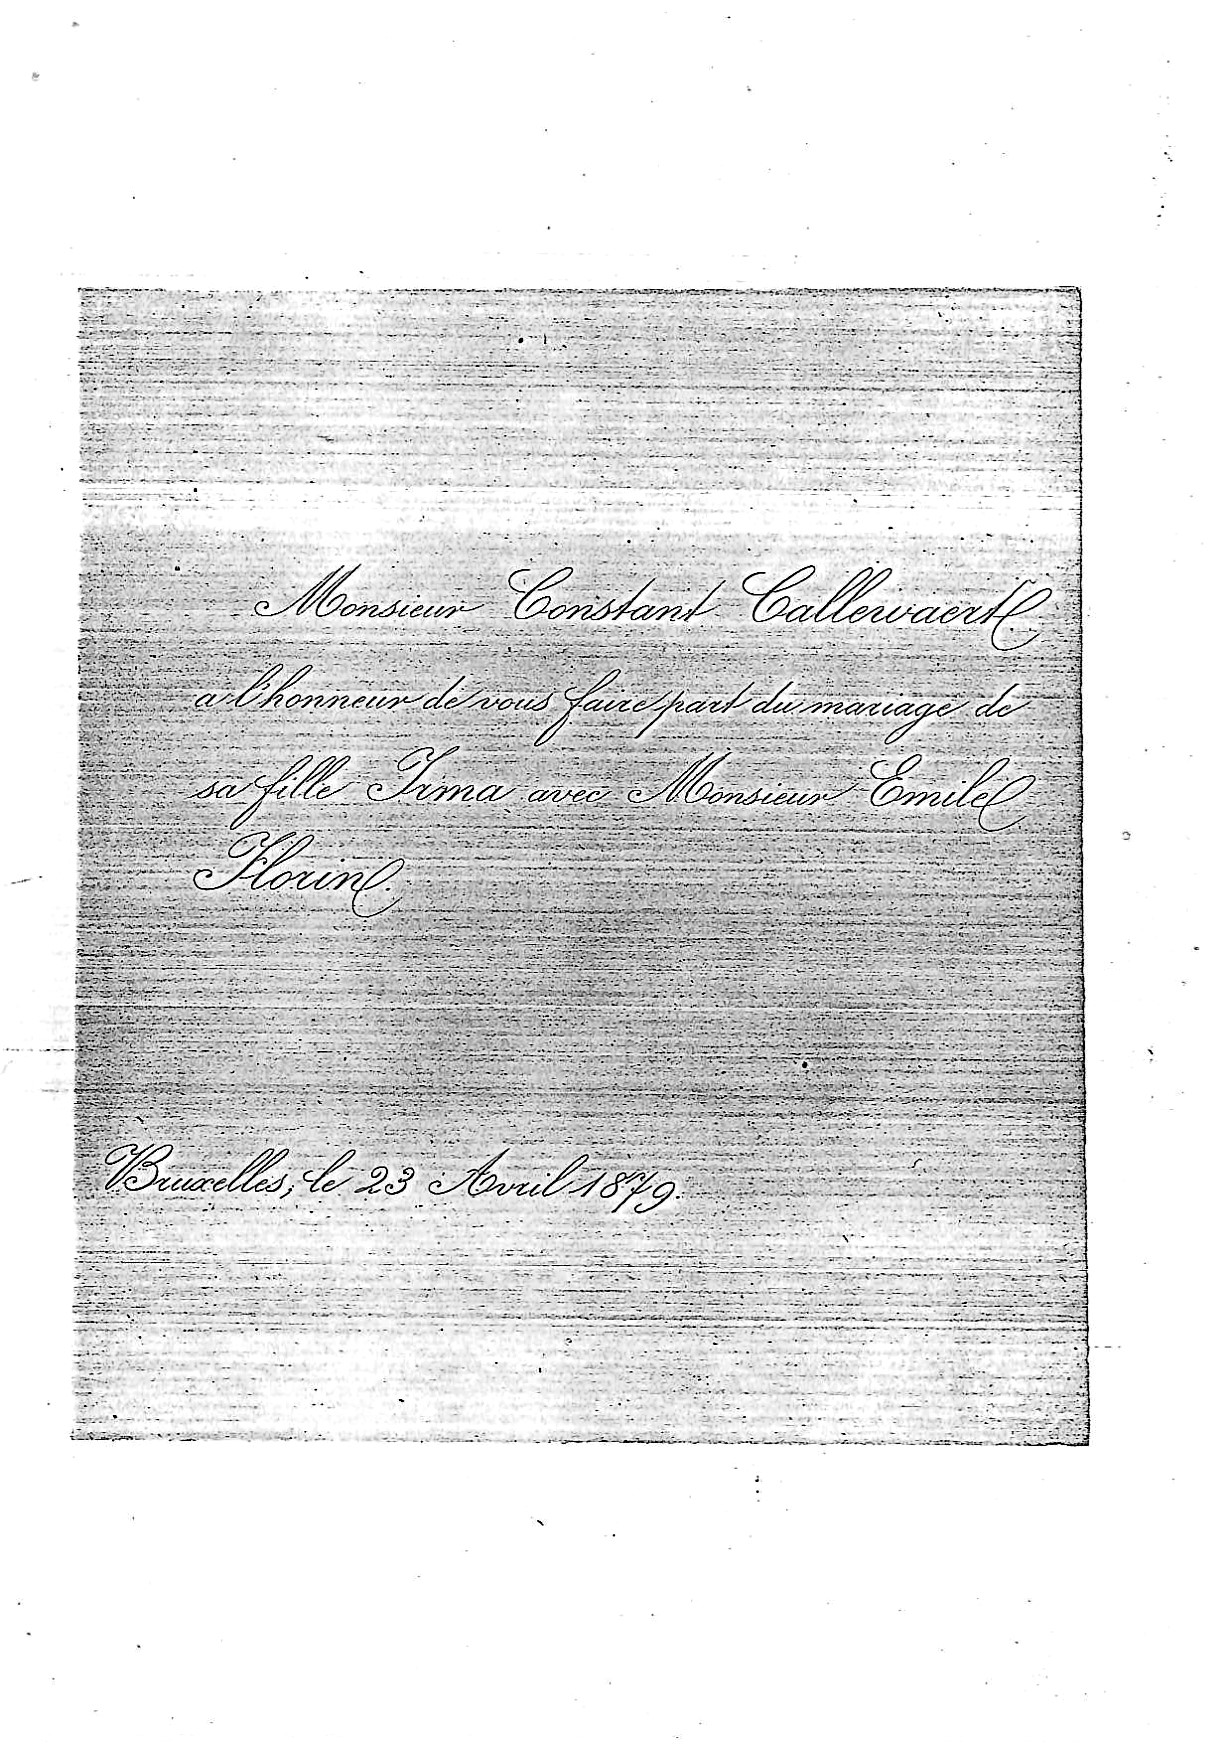 Monsieur Constant Callewaert
a l'honneur de vous faire part du mariage de
sa fille Irma avec Monsieur Emile
Florin.
Bruxelles, le 23 Avril 1879.